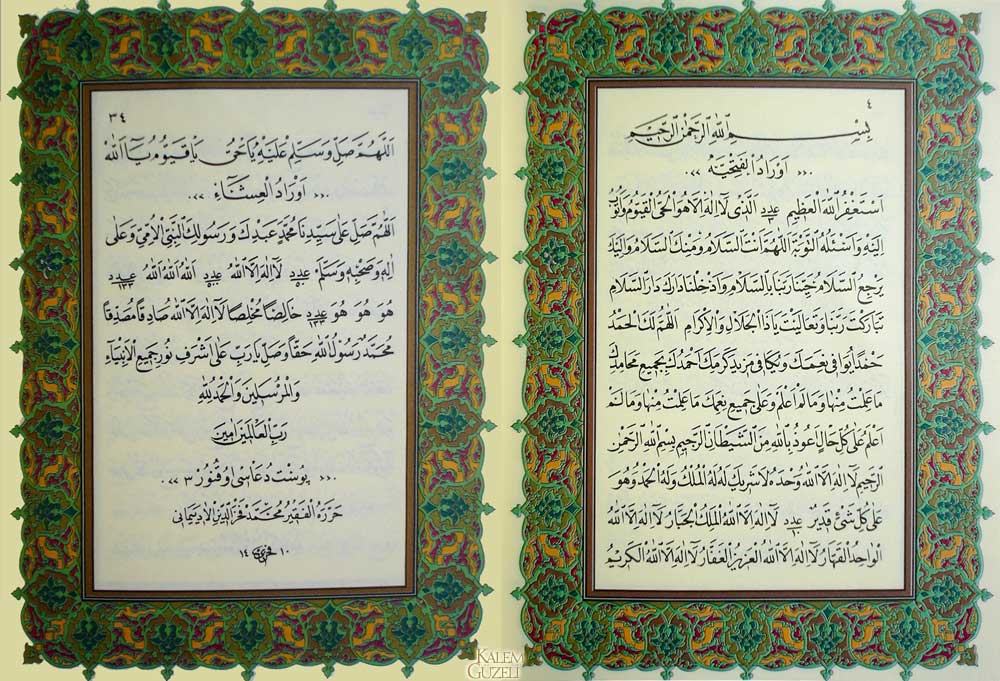 ٤
بِسْــــمِ اللهِ الرَّحْمٰنِ الرَّحِيْمِ
«« اَوْرَادُ الْفَتْحِيَّةِ »»
اَسْتَغْفِرُ اللهَ الْعَظِيْمَ عدد الَّذِى لَا اِلٰهَ اِلَّا هُوَ الْحَىَّ الْقَيُّومَ وَاَتُوبُ
اِلَيْهِ وَاَسْئَلُهُ التَّوْبَةَ اَللّٰهُمَّ اَنْتَ السَّلَامُ وَمِنْكَ السَّلَامُ وَاِلَيْكَ
يَرْجِعُ السَّلَامُ حَيِّنَا رَبَّنَا بِالسَّلَامِ وَاَدْخِلْنَا دَارَكَ دَارَ السَّلَامِ
تَبَارَكْتَ رَبَّنَا وَتَعَالَيْتَ يَا ذَا الْجَلَالِ وَالْاِكْرَامِ اَللّٰهُمَّ لَكَ الْحَمْدُ
حَمْدًا يُوَافِى نِعَمَكَ وَيُكَافِى مَزِيدَ كَرَمِكَ اَحْمَدُكَ بِجَمِيعِ مَحَامِدِكَ
مَا عَلِمْتُ مِنْهَا وَمَا لَمْ اَعْلَمْ وَعَلٰى جَمِيعِ نِعَمِكَ مَا عَلِمْتُ مِنْهَا وَمَا لَمْ
اَعْلَمْ عَلٰى كُلِّ حَالٍ اَعُوذُ بِاللهِ مِنَ الشَّيْطَانِ الرَّجِيمِ بِسْمِ اللهِ الرَّحْمٰنِ
الرَّحِيمِ لَا اِلٰهَ اِلَّا اللهُ وَحْدَهُ لَا شَرِيكَ لَهُ لَهُ الْمُلْكُ وَلَهُ الْحَمْدُ وَهُوَ
عَلٰى كُلِّ شَىْءٍ قَدِيرٌ عدد ١٠ لَا اِلٰهَ اِلَّا اللهُ الْمَلِكُ الْجَبَّارُ لَا اِلٰهَ اِلَّا اللهُ
الْوَاحِدُ الْقَهَّارُ لَا اِلٰهَ اِلَّا اللهُ الْعَزِيزُ الْغَفَّارُ لَا اِلٰهَ اِلَّا اللهُ الْكَرِيمُ
٣٤
اَللّٰهُمَّ صَلِّ وَسَلِّمْ عَلَيْهِ يَا حَىُّ يَا قَيُّومُ يَا اَللهُ
«« اَوْرَادُ الْعِشَاءِ »»
اَللّٰهُمَّ صَلِّ عَلٰى سَيِّدِنَا مُحَمَّدٍ عَبْدِكَ وَرَسُولِكَ النَّبِىِّ الْاُمِّىِّ وَعَلٰى
اٰلِهِ وَصَحْبِهِ وَسَلِّمْ عدد لَا اِلٰهَ اِلَّا اللهُ عدد اَللهُ اَللهُ اَللهُ عدد
هُوَ هُوَ هُوَ عدد ١٣٣ خَالِصًا مُخْلِصًا لَا اِلٰهَ اِلَّا اللهُ صَادِقًا مُصَدِّقًا
مُحَمَّدٌ رَسُولُ اللهِ حَقًّا وَصَلِّ يَا رَبِّ عَلٰى اَشْرَفِ نُورِ جَمِيعِ الْاَنْبِيَاءِ
وَالْمُرْسَلِينَ وَالْحَمْدُ لِلهِ
رَبِّ الْعَالَمِينَ اٰمِينَ
«« پوست دعاسى اوقنور ٣ »»
حَرَّرَهُ الْفَقِيرُ مُحَمَّد فَخْرُ الدِّينِ
١٤ ١٠
KALEM
GÜZELİ